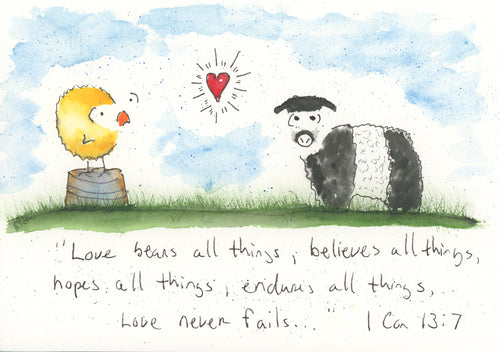 "Love bears all things, believes all things,
hopes all things, endures all things,..
Love never fails..." 1 Cor 13:7